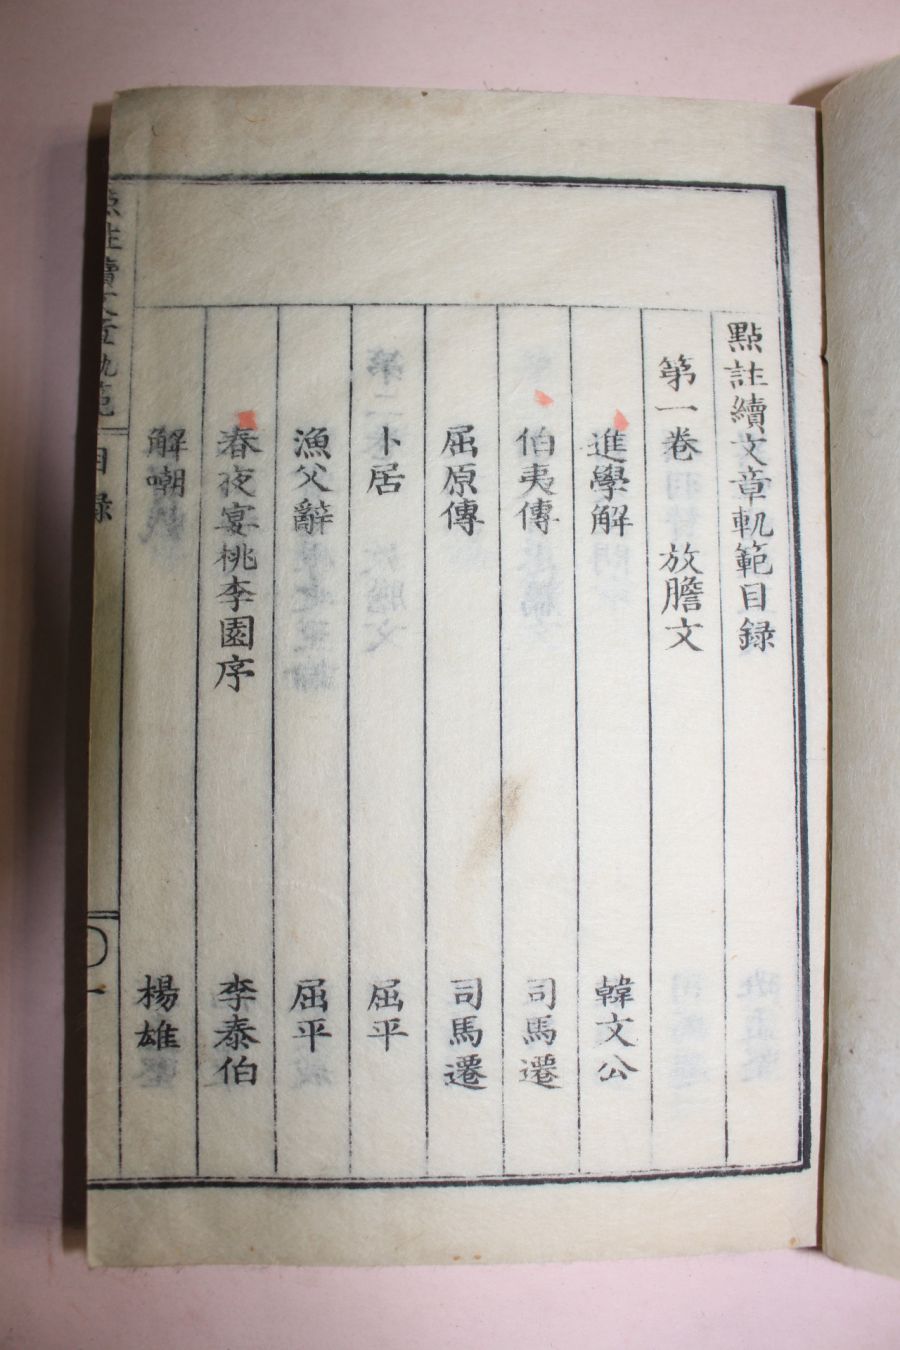 點註續文章軌範目録
第一卷 放膽文
進學解 韓文公
伯夷傳 司馬遷
屈原傳 司馬遷
卜居 屈平
漁父辭 屈平
春夜宴桃李園序 李泰伯
解嘲 楊雄
點註續文章軌範 目録 一